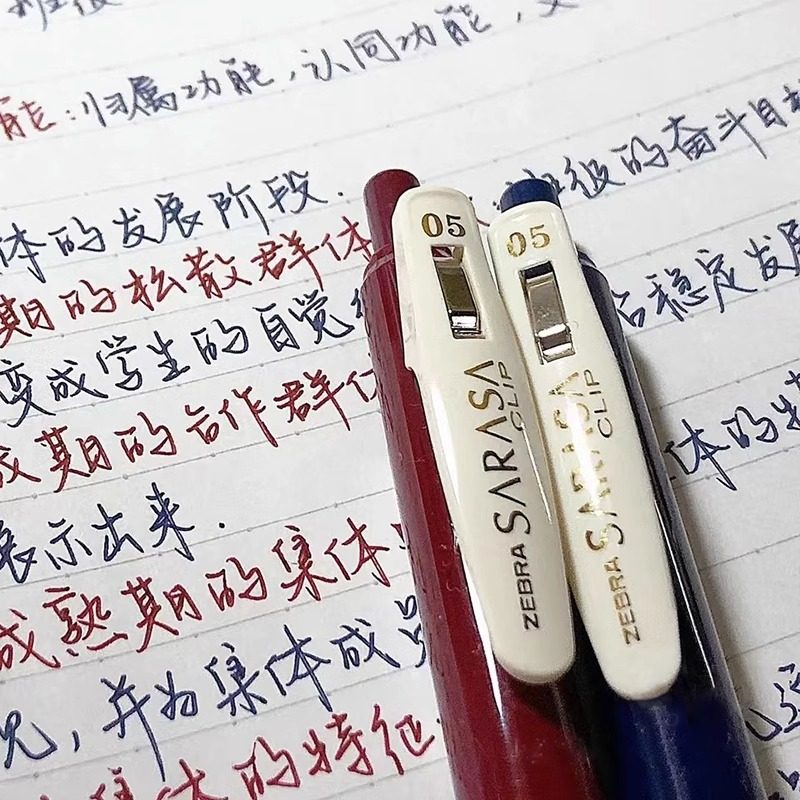 班级
能：归属功能，认同功能，
体的发展阶段.
班级的奋斗目
期的松散群体
变成学生的自觉
稳定发展
成期的合作群体
体的特
展示出来.
成熟期的集体
况，并为集体成员
集体的特征.
05
SARASA
CLIP
ZEBRA
05
SARASA
CLIP
ZEBRA